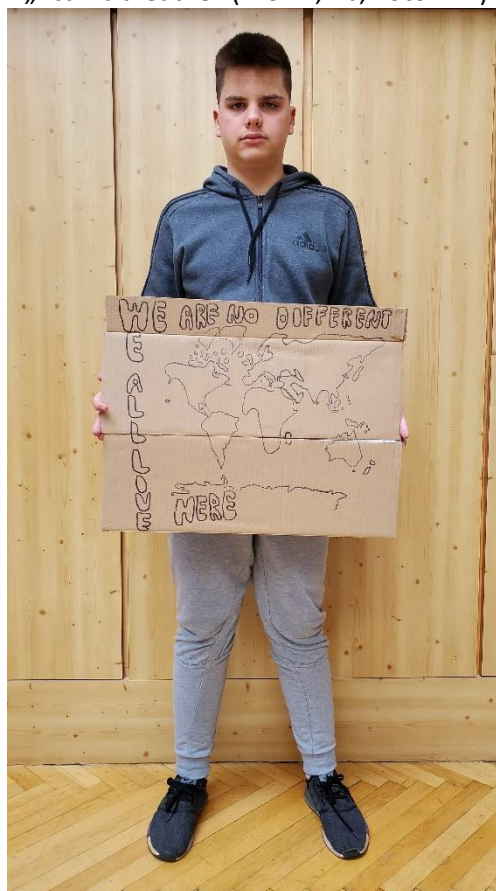 adidas
WE ARE NO DIFFERENT
WE ALL LIVE
HERE